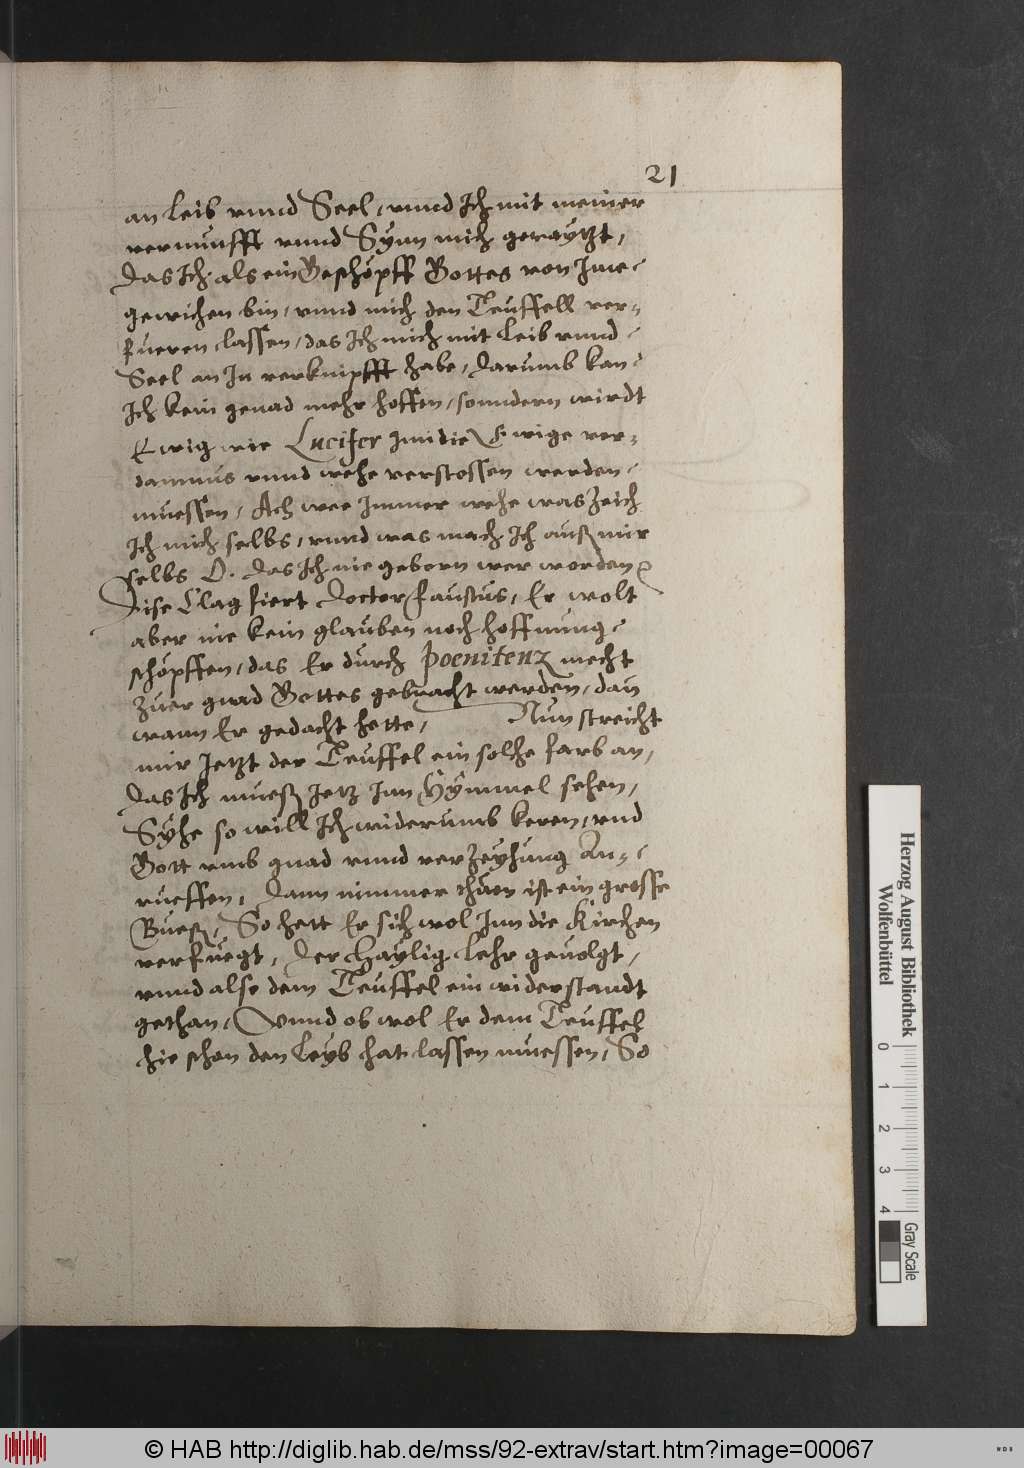 21
an Leib vnnd Seel, vnnd Ich mit meiner
vernunfft vnnd Synn mich geraytzt,
das Ich als ein Geschöpff Gottes von Ime
gewichen bin, vnnd mich den Teuffell ver-
fueren lassen, das Ich mich mit Leib vnnd
Seel an In verknipfft habe, darumb kan
Ich kein genad mehr hoffen, sonndern wirdt
Ewig wie Lucifer Inn die Ewige ver-
damnus vnnd wehe verstossen werden
muessen, Ach wee Immer wehe was Zeich
Ich mich selbs, vnnd was mach Ich auß mir
selbs O. das Ich nie geborn wer worden
Dise Clag fiert Doctor Faustus, Er wolt
aber nie kein glauben noch hoffnung
schöpffen, das Er durch Poenitenz mecht
zuer gnad Gottes gebracht werden, dan
wann Er gedacht hette, Nun streicht
mir Jetzt der Teuffel ein solche farb an,
das Ich mueß Jetz Inn Hÿmmel sehen,
Syhe so will Ich widerumb keren, vnd
Gott vmb gnad vnnd verzeyhung An-
rueffen, dann nimmer thuen ist ein grosse
Bueß, So hett Er sich wol Inn die Kirchen
verfuegt, der Haylig Lehr geuolgt,
vnnd also dem Teuffel ein widerstandt
gethan, Vnnd ob wol Er dem Teuffel
hie schon den Leyb hat lassen muessen, So
Herzog August Bibliothek
Wolfenbüttel
0 1 2 3 4
Gray Scale
© HAB http://diglib.hab.de/mss/92-extrav/start.htm?image=00067
WDB